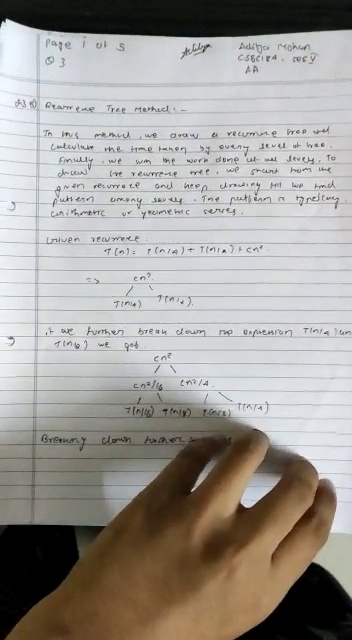 Page 1 of 5
Aditya Mohan
Q3
CSE
Recurrence Tree Method :-
In this method, we draw a recurrence tree and
calculate the time taken by every level of tree.
Finally, we sum the work done at all levels. To
draw the recurrence tree, we start from the
given recurrence and keep drawing till we find
pattern among levels. The pattern is typically
arithmetic or geometric series.
Given recurrence:
T(n) = T(n/4) + T(n/2) + cn²
=> cn²
T(n/4) T(n/2)
If we further break down the expression T(n/4) and
T(n/2) we get
cn²
cn²/16 cn²/4
T(n/16) T(n/8) T(n/8) T(n/4)
Breaking down further